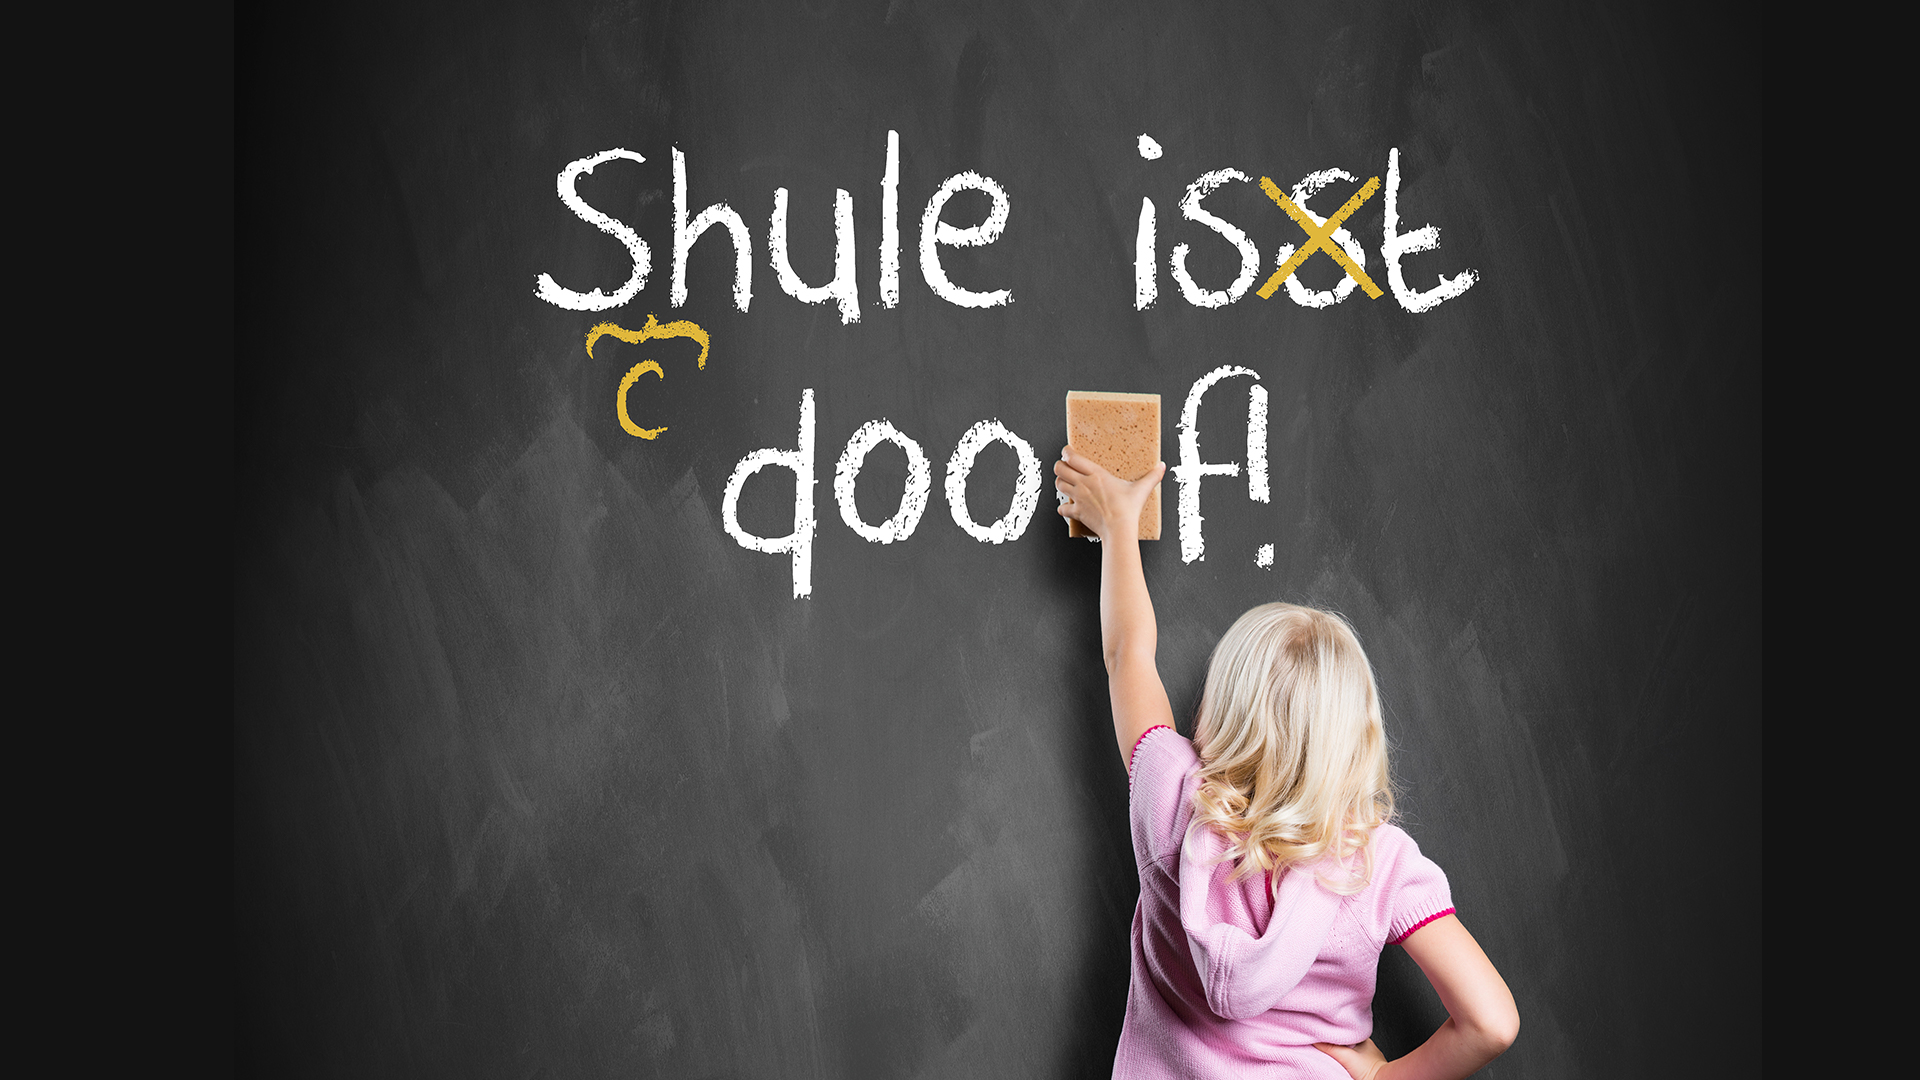 Shule isst
c
doo f!